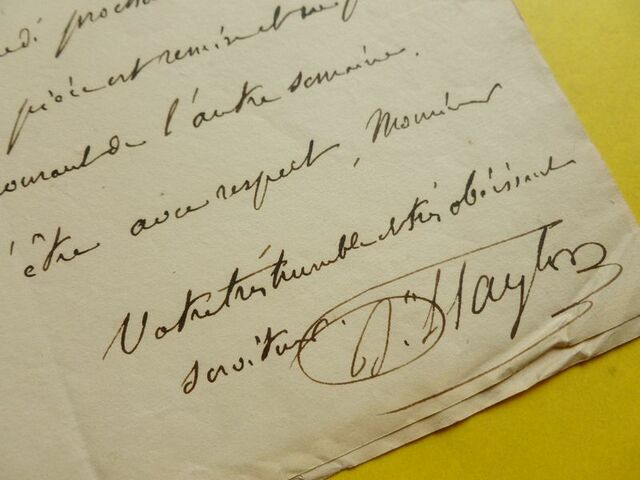 edi prochai
pièce est remise et ne p
courant de l'autre semaine.
être avec respect, Monsieur
Votre très humble et très obéissant
serviteur. Taylor